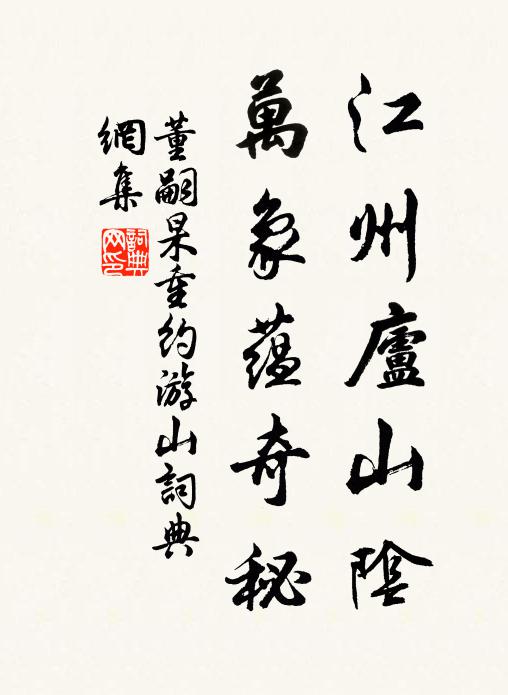 江州廬山陰
萬象蘊奇秘
董嗣杲重約游山詞典
網集
詞典網印